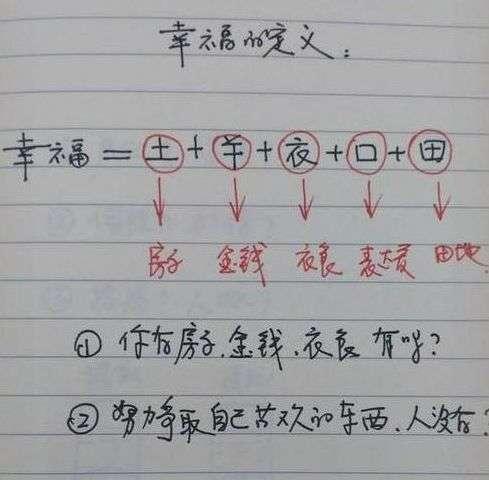 幸福的定义:
幸福 = 土 + 羊 + 夜 + 口 + 田
房子 金钱 衣食 表达爱 田地
① 你有房子、金钱、衣食 有吗?
② 努力争取自己喜欢的东西、人没有?